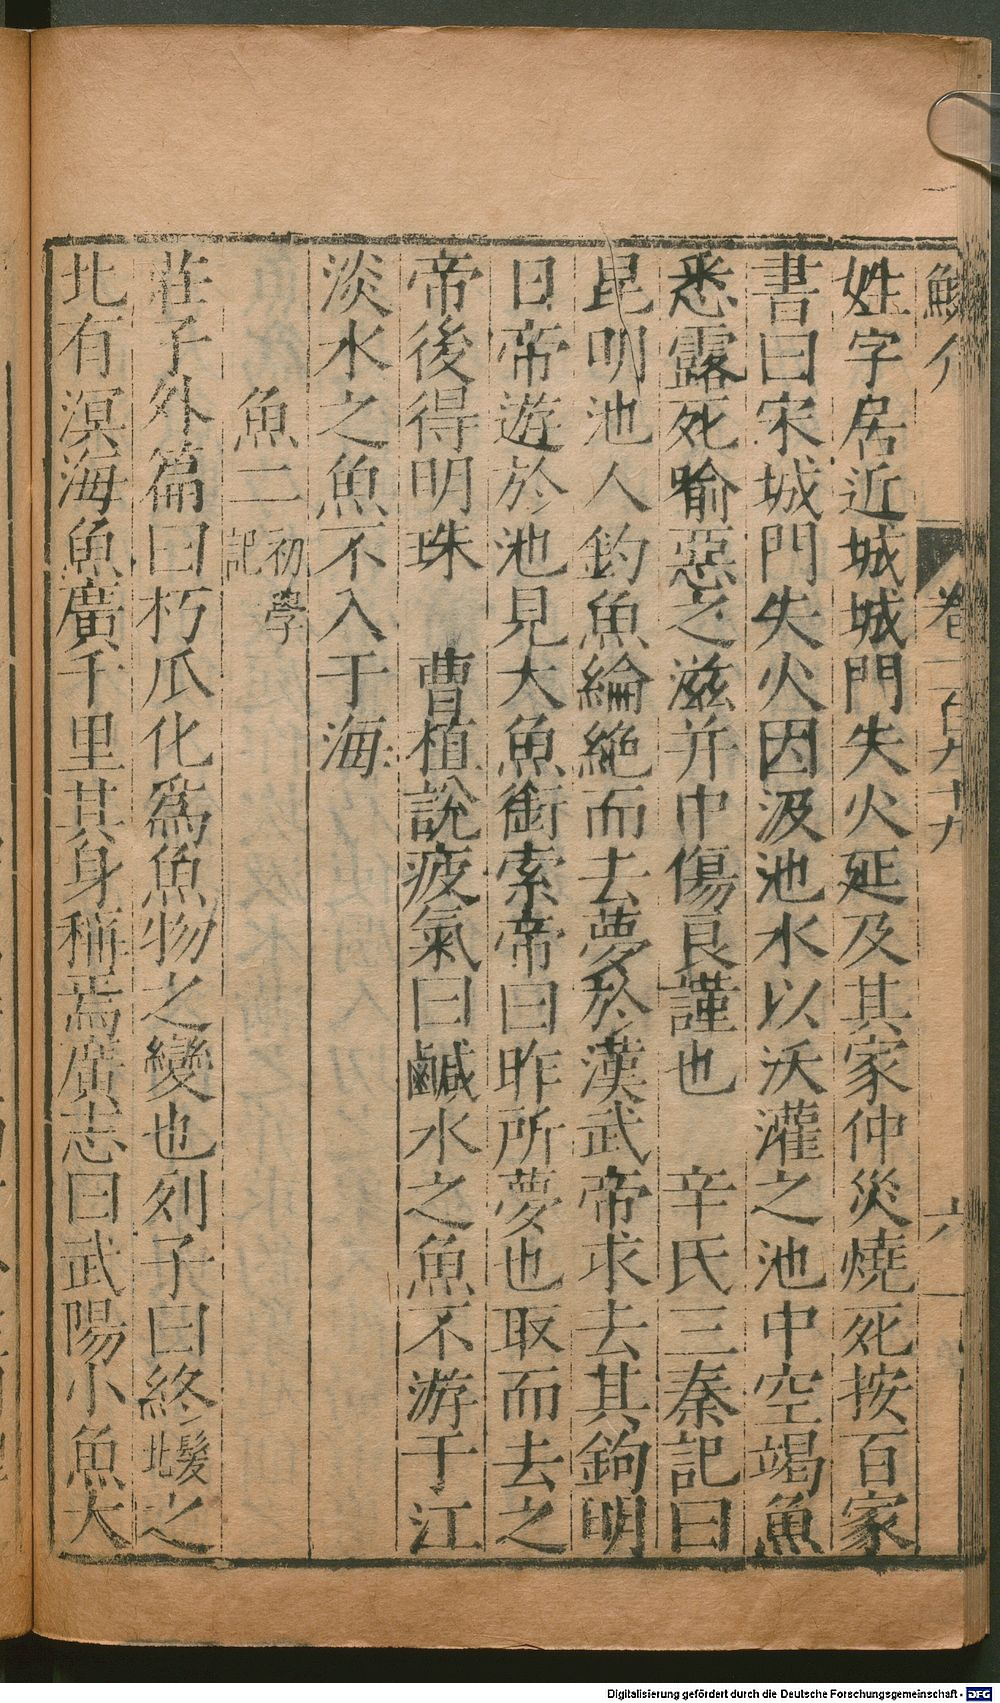 鱗介
卷一百九十九
六
姓字居近城城門失火延及其家仲災燒死按百家
書曰宋城門失火因汲池水以沃灌之池中空竭魚
悉露死喻惡之滋并中傷良謹也　辛氏三秦記曰
昆明池人釣魚綸絶而去夢於漢武帝求去其鉤明
日帝遊於池見大魚銜索帝曰昨所夢也取而去之
帝後得明珠　曹植說疲氣曰鹹水之魚不游于江
淡水之魚不入于海
魚二初學記
莊子外篇曰朽瓜化爲魚物之變也列子曰終髮北之
北有溟海魚廣千里其身稱焉廣志曰武陽小魚大
Digitalisierung gefördert durch die Deutsche Forschungsgemeinschaft - DFG